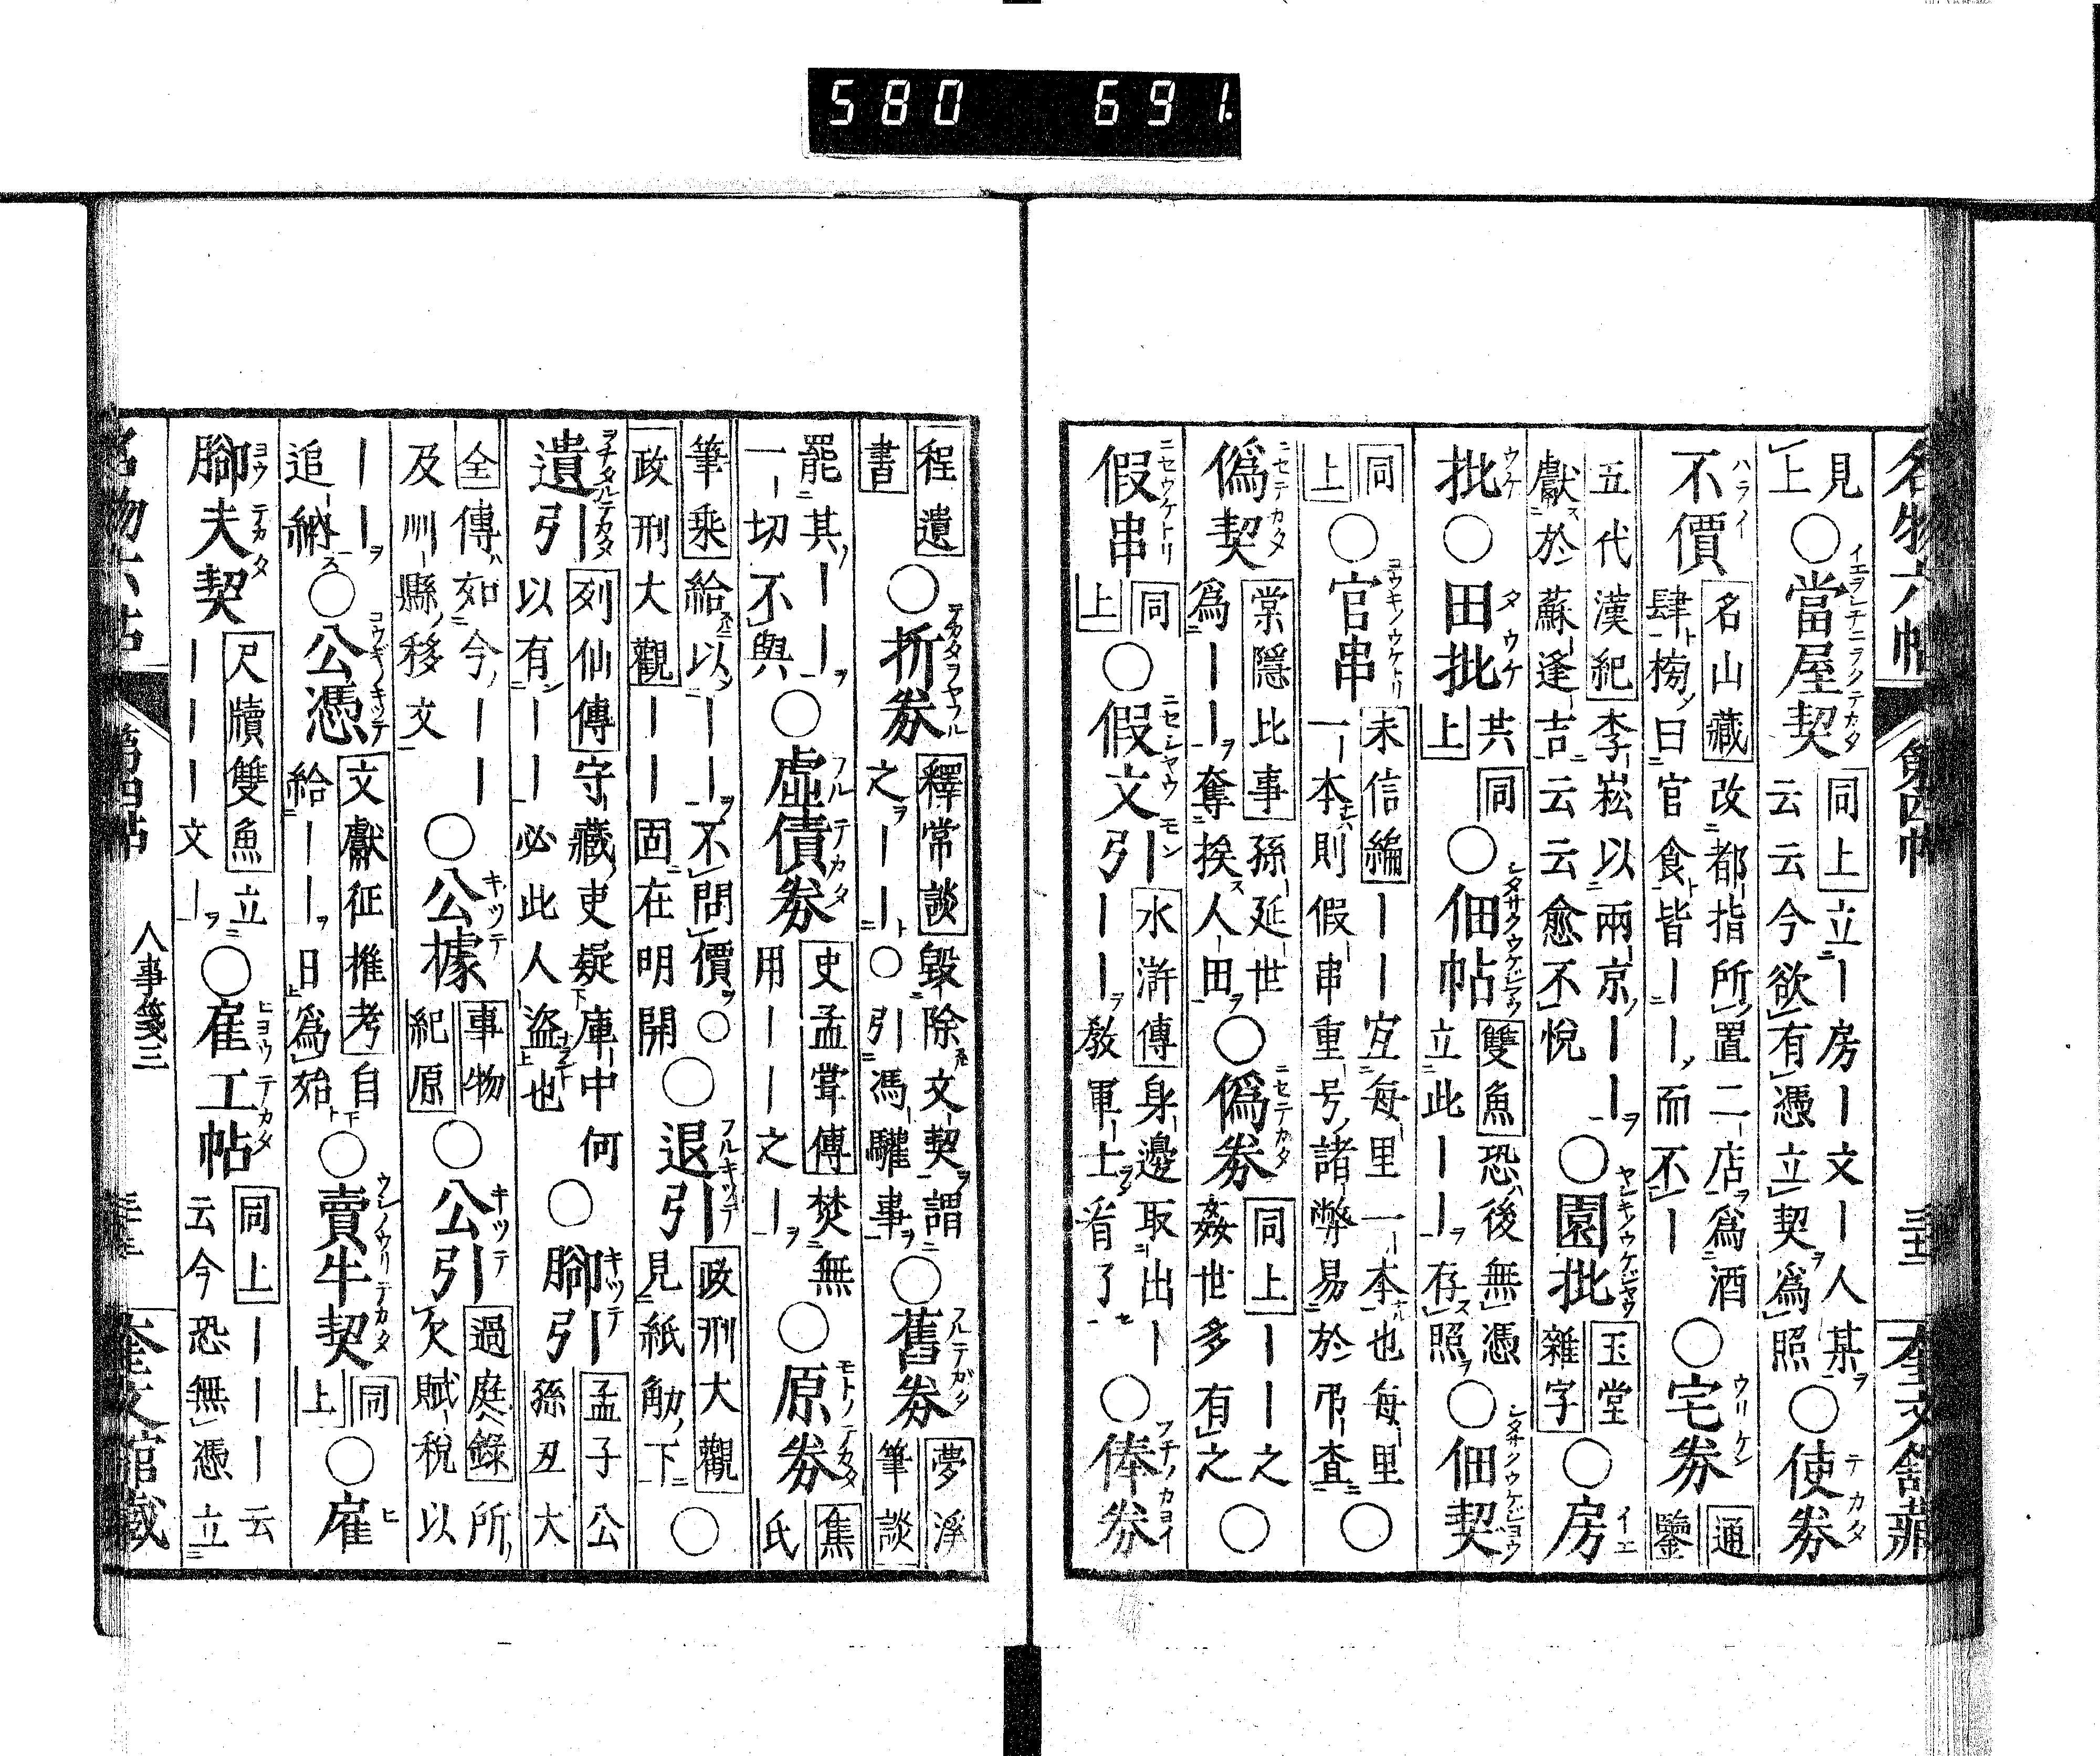 580 691.
名物六帖 第四帖 三十三 奎文館蔵
見上○當屋契 同上 立｜房｜文｜人某云云今欲有憑立契為照○使劵
不價 名山藏 改都指所置二店為酒肆榜曰官食皆｜｜而不｜○宅劵 通鑒
五代漢紀 李崧以兩京｜｜獻於蘇逢吉云云愈不悅○園批 玉堂雜字○房
批○田批 共上同○佃帖 雙魚 恐後無憑立此｜｜存照○佃契
同上○官串 未信編 ｜｜宜每里一本也每里一本則假串重号諸弊易於弔查○
偽契 棠隱比事 孫延世為｜｜奪挨人田○偽劵 同上 ｜｜之姦世多有之○
假串 同上○假文引 水滸傳 身邊取出｜｜｜教軍上看了○俸劵
程遺書○折劵 釋常談 毀除文契謂之｜｜○引馮驩事○舊劵 夢溪筆談
罷其｜｜一切不與○虛債劵 史孟嘗傳 焚無用｜｜之｜○原劵 焦氏
筆乘 給以｜｜不問價○政刑大觀 ｜｜固在明開○退引 政刑大觀 見紙觔下○
遺引 列仙傳 守藏吏疑庫中以有｜｜必此人盜也何○腳引 孟子公孫丑大
全 傳如今｜｜及州縣移文○公據 事物紀原○公引 過庭錄 所欠賦稅以
｜｜追納○公憑 文獻征榷考 自給｜｜日為始○賣牛契 同上○雇
腳夫契 尺牘雙魚 立｜｜｜文｜○雇工帖 同上 ｜｜｜云云今恐無憑立
名物六帖 第四帖 人事箋三 三十三 奎文館蔵